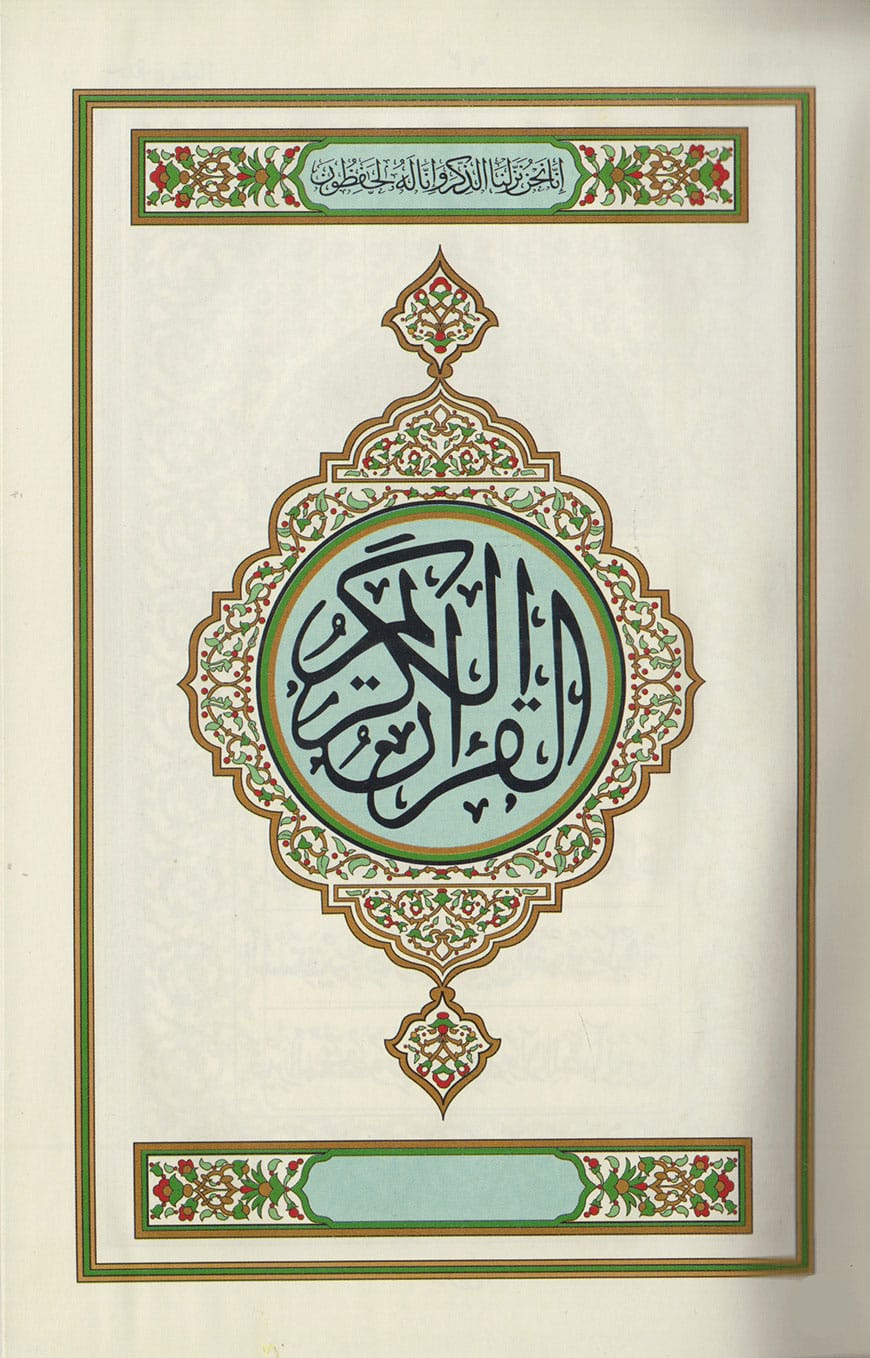 إِنَّا نَحْنُ نَزَّلْنَا الذِّكْرَ وَإِنَّا لَهُ لَحَافِظُونَ
القرآن الكريم